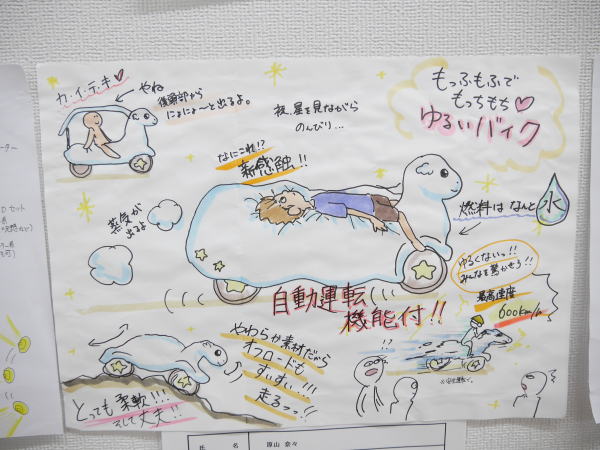 カ・イ・テ・キ♥
やね
後頭部から
にょにょ〜と出るよ。
夜、星を見ながら
のんびり…
もっふもふで
もっちもち♥
ゆるいバイク
なにこれ!?
新感触!!
蒸気が
出るよ
燃料はなんと
水
ゆるくないっ!!
みんなを驚かせろ!!
最高速度
600km/h
自動運転
機能付!!
やわらか素材だから
オフロードも
すいすい!!!
走るっっ!!
とっても柔軟!!!
そして丈夫!!
!!
!?
氏 名
原山 奈々